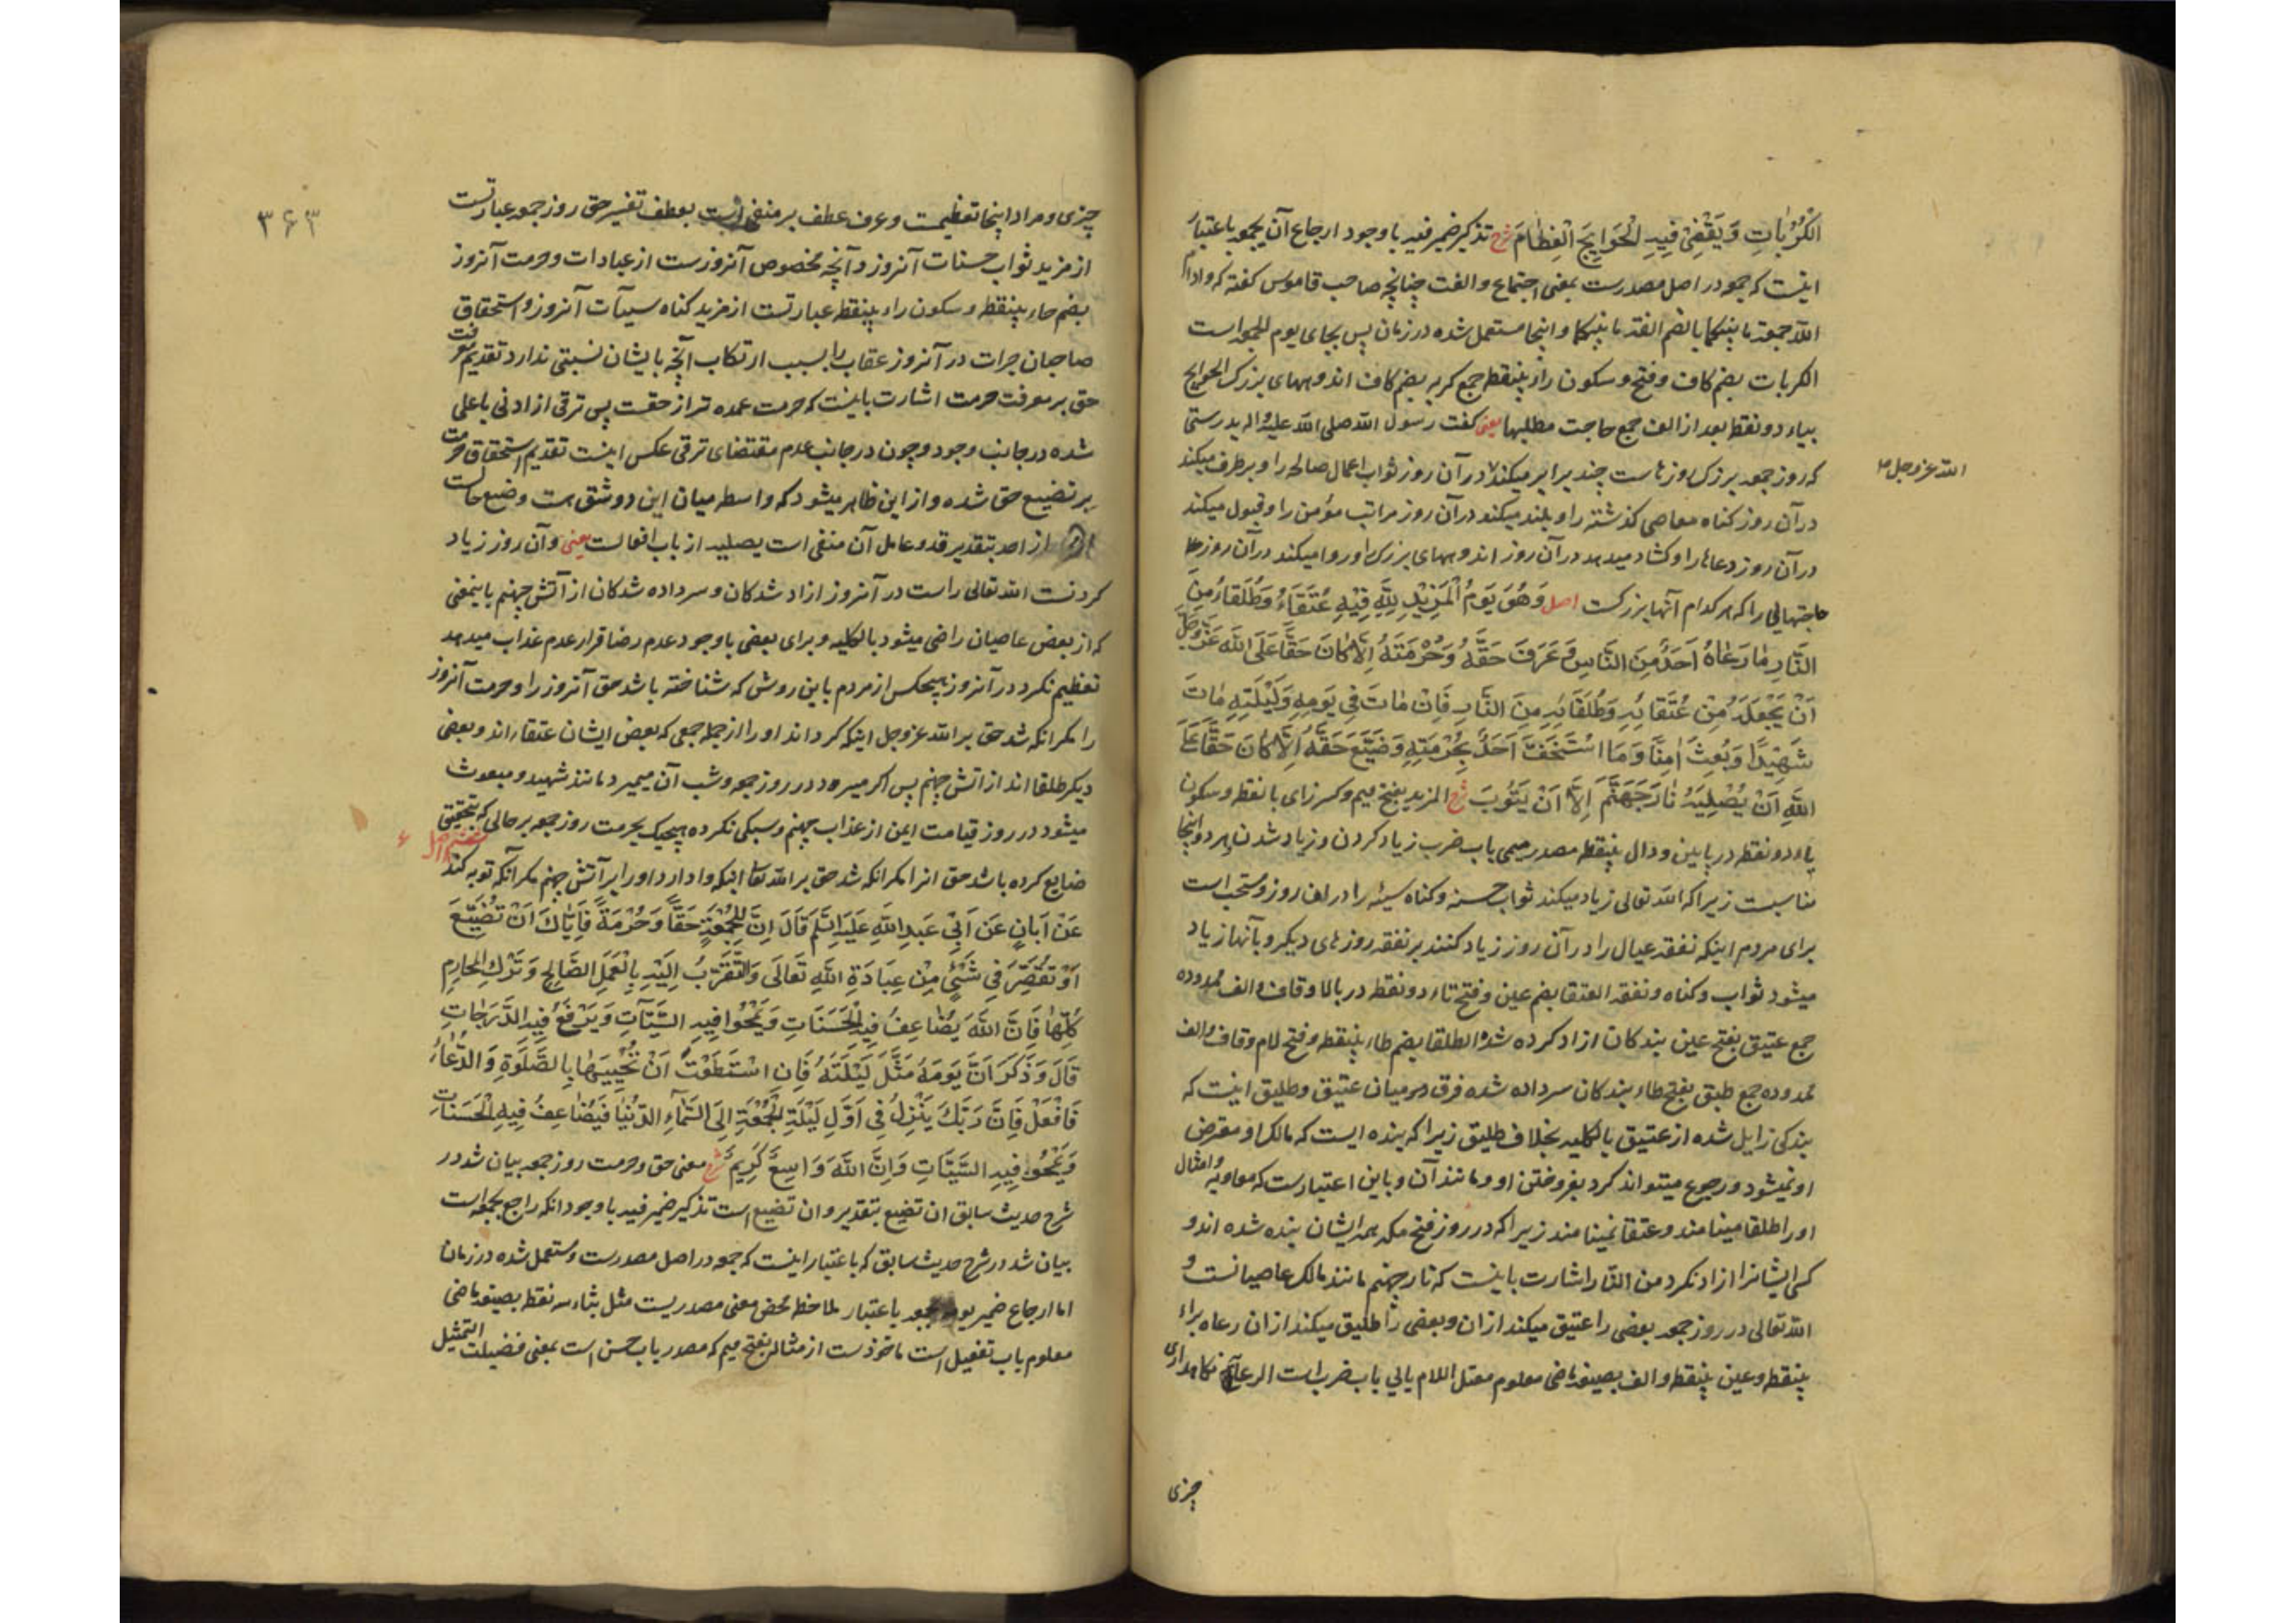 الْكُرُبَاتِ وَيَقْضِي فِيهِ الْحَوَايِجَ الْعِظَامَ شرح تذکیر ضمیر فیه با وجود ارجاع آن بجمعه باعتبار
اینست که جمعه در اصل مصدرست بمعنی اجتماع و الفت چنانچه صاحب قاموس کفته که و ادام
الله جمعة ما بینکما بالضم الفة ما بینکما و اینجا مستعمل شده در زمان پس بجای یوم الجمعه است
الکربات بضم کاف و فتح و سکون راء بینقطه جمع کربه بضم کاف اندوههای بزرک الحوایج
بیاء دو نقطه بعد از الف جمع حاجت مطلبها یعنی کفت رسول الله صلی الله علیه و اله بدرستی
که روز جمعه بزرک روزهاست چند برابر میکند در آن روز ثواب اعمال صالحه را و برطرف میکند
الله عز وجل
در آن روز کناه معاصی کذشته را و بلند میکند در آن روز مراتب مؤمن را و قبول میکند
در آن روز دعاها را و کشاد میدهد در آن روز اندوههای بزرک را و روا میکند در آن روز
حاجتهائی را که هر کدام آنها بزرکست اصل وَهُوَ يَوْمُ الْمَزِيدِ لِلَّهِ فِيهِ عُتَقَاءُ وَطُلَقَاءُ مِنَ
النَّارِ مَا رَعَاهُ أَحَدٌ مِنَ النَّاسِ وَ عَرَفَ حَقَّهُ وَحُرْمَتَهُ إِلَّا كَانَ حَقًّا عَلَى اللهِ عَزَّ وَجَلَّ
أَنْ يَجْعَلَهُ مِنْ عُتَقَائِهِ وَطُلَقَائِهِ مِنَ النَّارِ فَإِنْ مَاتَ فِي يَوْمِهِ وَلَيْلَتِهِ مَاتَ
شَهِيدًا وَبُعِثَ آمِنًا وَمَا اسْتَخَفَّ أَحَدٌ بِحُرْمَتِهِ وَضَيَّعَ حَقَّهُ إِلَّا كَانَ حَقًّا عَلَى
اللهِ أَنْ يُصْلِيَهُ نَارَ جَهَنَّمَ إِلَّا أَنْ يَتُوبَ شرح المزید بفتح میم و کسر زای با نقطه و سکون
یاء دو نقطه در پایین و دال بینقطه مصدر میمی باب ضرب زیاد کردن و زیاد شدن هر دو اینجا
مناسبست زیرا که الله تعالی زیاد میکند ثواب حسنه و کناه سیئه را در این روز و مستحب است
برای مردم اینکه نفقه عیال را در آن روز زیاد کنند بر نفقه روزهای دیکر و بآنها زیاد
میشود ثواب و کناه و نفقه العتقا بضم عین و فتح تاء دو نقطه در بالا و قاف و الف ممدوده
جمع عتیق بفتح عین بندکان ازاد کرده شده الطلقا بضم طاء بینقطه و فتح لام و قاف و الف
ممدوده جمع طبق بفتح طاء بندکان سرداده شده فرق در میان عتیق و طلیق اینست که
بندکی زایل شده از عتیق بالکلیه بخلاف طلیق زیرا که بنده ایست که مالک او معترض
او نمیشود و رجوع میتواند کرد بفروختن او و مانند آن و باین اعتبارست که معاویه و امثال
او را طلقا مینامند و عتقا نمینامند زیرا که در روز فتح مکه همه ایشان بنده شده اند و
کسی ایشانرا ازاد نکرد من النار اشارت باینست که نار جهنم مانند مالک عاصیانست و
الله تعالی در روز جمعه بعضی را عتیق میکند از ان و بعضی را طلیق میکند از ان رعاه براء
بینقطه و عین بینقطه و الف بصیغه ماضی معلوم معتل اللام یائی باب ضرب است الرعایة نکاهداری
چیزی
۳۶۳
چیزی و مراد اینجا تعظیمست و عرف عطف بر منفی است بعطف تفسیر حق روز جمعه عبارتست
از مزید ثواب حسنات آنروز و آنچه مخصوص آنروزست از عبادات و حرمت آنروز
بضم حاء بینقطه و سکون راء بینقطه عبارتست از مزید کناه سیئات آنروز و استحقاق
صاحبان جرات در آنروز عقاب را بسبب ارتکاب آنچه بایشان نسبتی ندارد تقدیم معرفت
حق بر معرفت حرمت اشارت باینست که حرمت عمده تر از حقست پس ترقی از ادنی باعلی
شده در جانب وجود و چون در جانب عدم مقتضای ترقی عکس اینست تقدیم استحقاق حرمت
بر تضییع حق شده و از این ظاهر میشود که واسطه میان این دو شق هست و ضیع حالست
از احد بتقدیر قد و عامل آن منفی است یصلیه از باب افعالست یعنی و آن روز زیاد
کردنست الله تعالی راست در آنروز ازاد شدکان و سرداده شدکان از آتش جهنم باینمعنی
که از بعض عاصیان راضی میشود بالکلیه و برای بعضی با وجود عدم رضا قرار عدم عذاب میدهد
تعظیم نکرد در آنروز هیچکس از مردم باین روش که شناخته باشد حق آنروز را و حرمت آنروز
را مکر انکه شد حق بر الله عز وجل اینکه کرداند او را از جمله جمعی که بعض ایشان عتقااند و بعضی
دیکر طلقااند از اتش جهنم پس اکر میرد در روز جمعه و شب آن میمیرد مانند شهید و مبعوث
میشود در روز قیامت ایمن از عذاب جهنم و سبکی نکرده هیچیک بحرمت روز جمعه بر حالی که بتحقیق
ضایع کرده باشد حق انرا مکر انکه شد حق بر الله تعالی اینکه وادارد او را بر آتش جهنم مکر آنکه توبه کند
اصل
عَنْ أَبَانٍ عَنْ أَبِي عَبْدِ اللهِ عَلَيْهِ السَّلَمُ قَالَ إِنَّ لِلْجُمْعَةِ حَقًّا وَحُرْمَةً فَإِيَّاكَ أَنْ تُضَيِّعَ
أَوْ تُقَصِّرَ فِي شَيْءٍ مِنْ عِبَادَةِ اللهِ تَعَالَى وَالتَّقَرُّبُ إِلَيْهِ بِالْعَمَلِ الصَّالِحِ وَتَرْكِ الْمَحَارِمِ
كُلِّهَا فَإِنَّ اللهَ يُضَاعِفُ فِيهِ الْحَسَنَاتِ وَيَمْحُوا فِيهِ السَّيِّئَاتِ وَيَرْفَعُ فِيهِ الدَّرَجَاتِ
قَالَ وَذَكَرَ أَنَّ يَوْمَهُ مَثَّلَ لَيْلَتَهُ فَإِنِ اسْتَطَعْتَ أَنْ تُحْيِيَهَا بِالصَّلَوةِ وَالدُّعَاءِ
فَافْعَلْ فَإِنَّ رَبَّكَ يَنْزِلُ فِي أَوَّلِ لَيْلَةِ الْجُمْعَةِ إِلَى السَّمَاءِ الدُّنْيَا فَيُضَاعِفُ فِيهِ الْحَسَنَاتِ
وَيَمْحُو فِيهِ السَّيِّئَاتِ وَإِنَّ اللهَ وَاسِعٌ كَرِيمٌ شرح معنی حق و حرمت روز جمعه بیان شد در
شرح حدیث سابق ان تضیع بتقدیر و ان تضیع است تذکیر ضمیر فیه با وجود انکه راجع بجمعه است
بیان شد در شرح حدیث سابق که باعتبار اینست که جمعه در اصل مصدرست و مستعمل شده در زمان
اما ارجاع ضمیر یومه بجمعه باعتبار ملاحظه محض معنی مصدریست مثل بثاء سه نقطه بصیغه ماضی
معلوم باب تفعیل است ماخوذست از مثاله بفتح میم که مصدر باب حسن است بمعنی فضیلت التمثیل